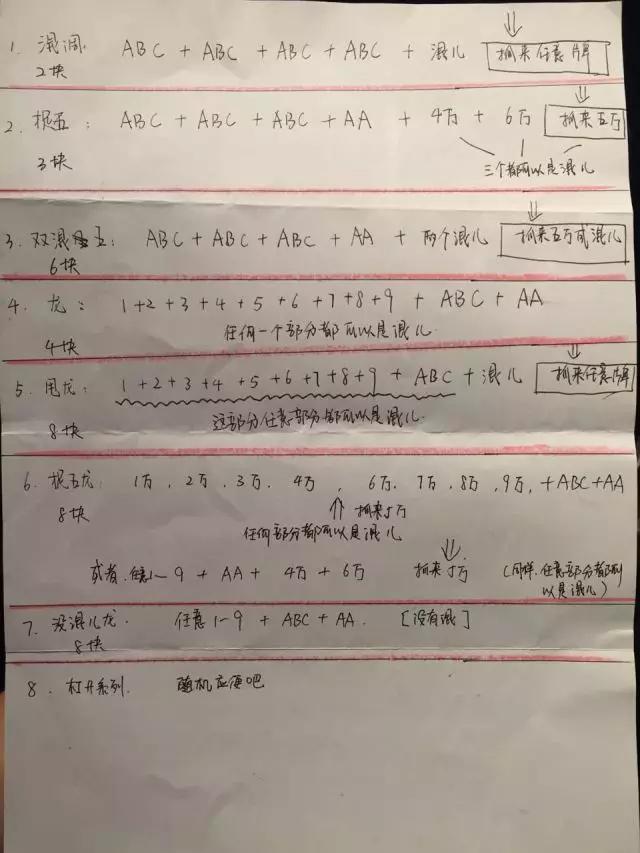 1. 混调. ABC + ABC + ABC + ABC + 混儿 抓来任意牌
2块
2. 捉五: ABC + ABC + ABC + AA + 4万 + 6万 抓来五万
3块 三个都可以是混儿
3. 双混捉五: ABC + ABC + ABC + AA + 两个混儿 抓来五万或混儿
6块
4. 龙: 1+2+3+4+5+6+7+8+9 + ABC + AA
任何一个部分都可以是混儿
4块
5. 甩龙: 1+2+3+4+5+6+7+8+9 + ABC + 混儿 抓来任意牌
8块 这部分任意部分都可以是混儿.
6. 捉五龙: 1万, 2万, 3万, 4万, 6万, 7万, 8万, 9万, +ABC+AA
8块 抓来5万
任何部分都可以是混儿
或者.任意1~9 + AA + 4万 + 6万 抓来5万 (同样.任意部分都可以是混儿)
7. 没混儿龙. 任意1~9 + ABC + AA. [没有混]
8块
8. 杠开系列. 随机应变吧